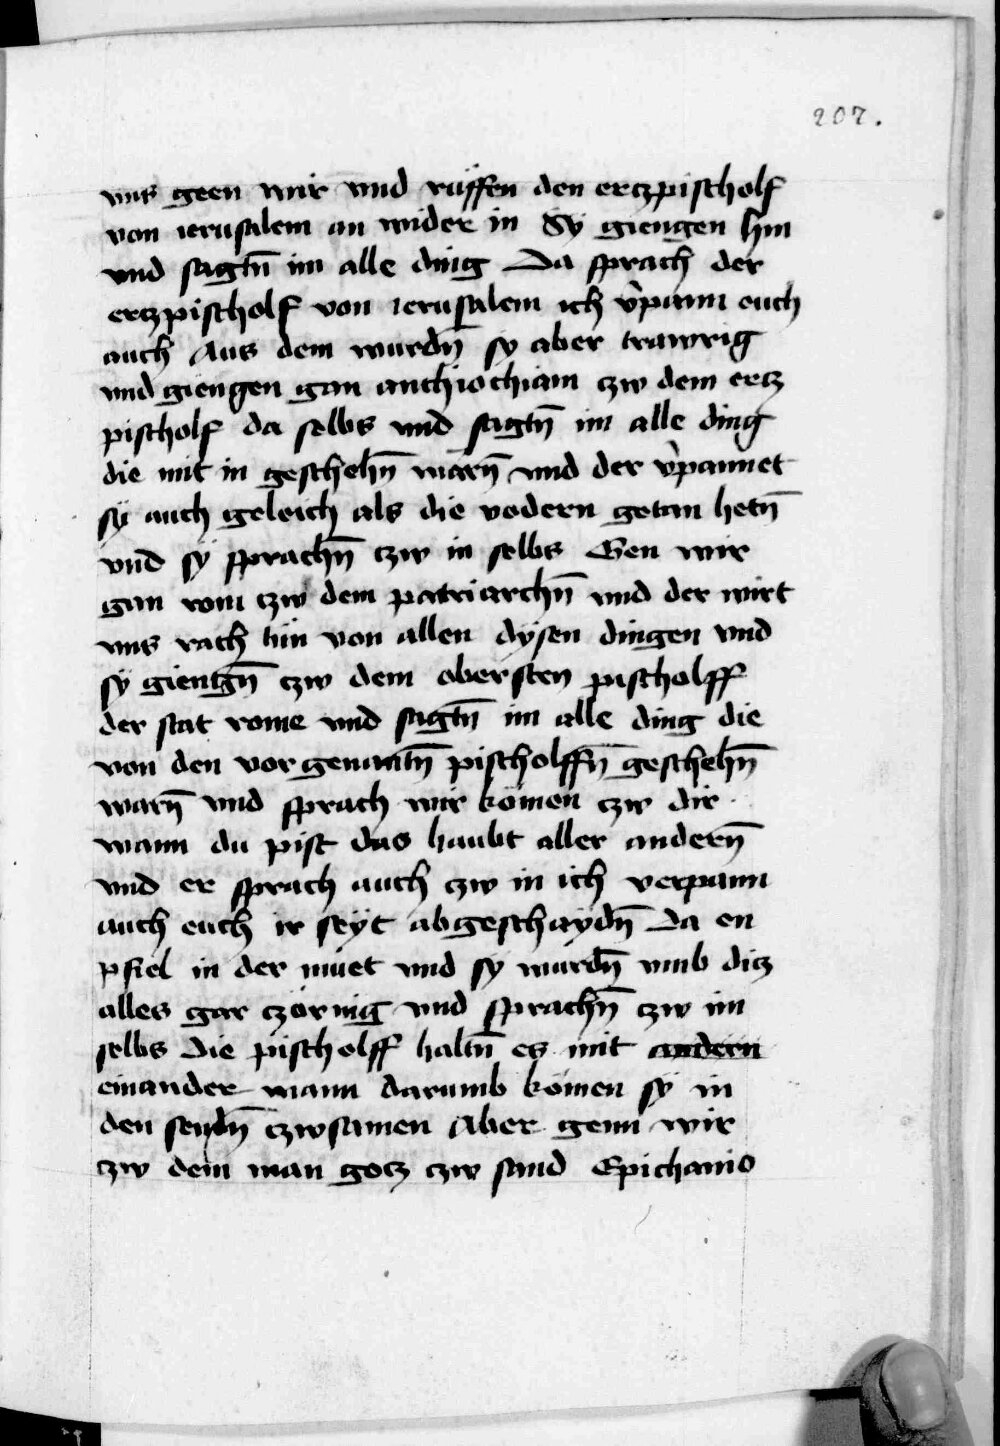 207.
vns geen wir vnd rüffen den ertzpischolf
von ierusalem an wider in Sy giengen hin
vnd sagtn̄ im alle ding Da sprach der
ertzpischolf von ierusalem ich v̉pann euch
auch Aus dem wurdn̄ sy aber trawrig
vnd giengen gan anthiochiam czw dem ertz
pischolf da selbs vnd sagtn̄ im alle ding
die mit in geschehn̄ warn̄ vnd der v̉pannet
sÿ auch geleich als die vodern getan hetn̄
vnd sÿ sprachn̄ czw in selbs Gen wir
gan rom czw dem patriarchn̄ vnd der wirt
vns rach tün von allen dÿsen dingen vnd
sÿ giengn̄ czw dem obersten pischolff
der stat rome vnd sagtn̄ im alle ding die
von den vorgenantn̄ pischolffn̄ geschehn̄
warn̄ vnd sprach wir kömen czw dir
wann du pist das haubt aller andern̄
vnd er sprach auch czw in ich verpann
auch euch ir seyt abgeschaydn̄ Da en
pfiel in der müet vnd sy wurdn̄ vmb ditz
alles gar czörnig vnd sprachn̄ czw im
selbs Die pischolff haltn̄ es mit andern
einander wann darumb kömen sÿ in
den sendn̄ czwsamen Aber genn wir
czw dem man gotz czw sand Epichanio